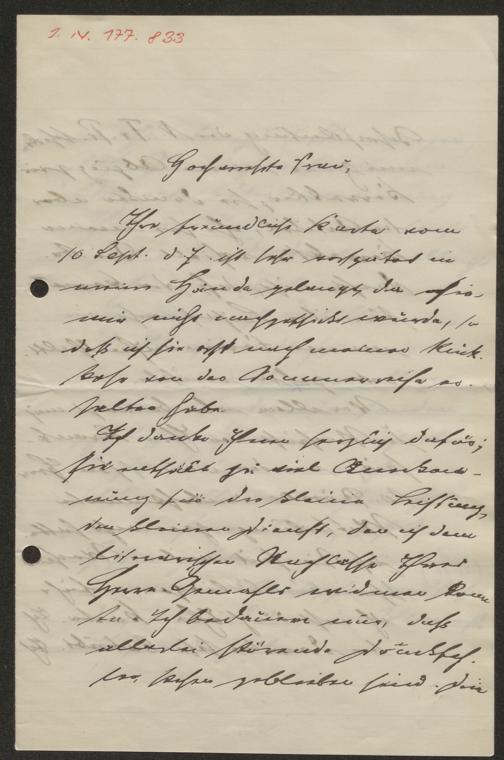 1. IV. 177. 833
Hochverehrte Frau,
Ihre freundliche Karte vom
10 Sept. d J. ist sehr verspätet in
meine Hände gelangt, da sie
mir nicht nachgeschickt wurde, so
daß ich sie erst nach meiner Rück-
kehr von der Sommerreise er-
halten habe.
Ich danke Ihnen herzlich dafür;
sie enthält zu viel Anerken-
nung für die kleine Leistung,
den kleinen Dienst, den ich dem
literarischen Nachlasse Ihres
Herrn Gemahls widmen konn
te. Ich bedauere nur, daß
allerlei störende Druckfeh-
ler stehen geblieben sind. Die